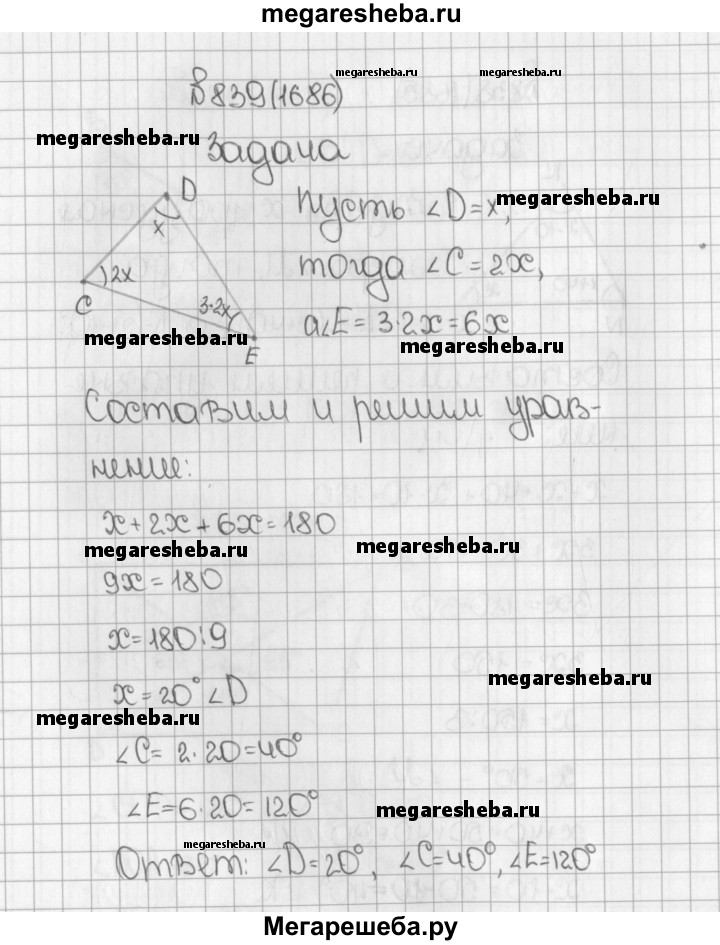 megaresheba.ru
№839(1686)
megaresheba.ru
megaresheba.ru
megaresheba.ru
задача
D
x
2x
C
3·2x
E
пусть ∠D=x,
megaresheba.ru
тогда ∠C=2x,
а∠E=3·2x=6x
megaresheba.ru
megaresheba.ru
Составим и решим урав-
нение:
x+2x+6x=180
megaresheba.ru
megaresheba.ru
9x=180
x=180:9
megaresheba.ru
x=20° ∠D
megaresheba.ru
∠C= 2·20=40°
∠E=6·20=120°
megaresheba.ru
megaresheba.ru
Ответ: ∠D=20°, ∠C=40°, ∠E=120°
Мегарешеба.ру